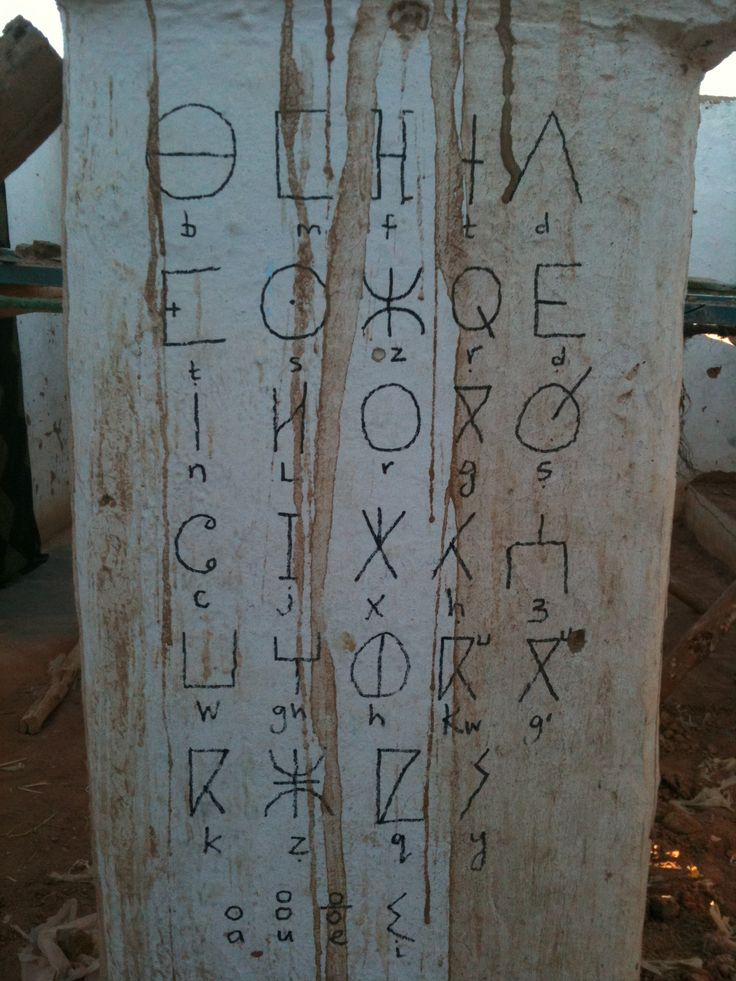 ⴱ ⵎ ⴼ ⵜ ⴷ
b m f t d
ⵟ ⵙ ⵣ ⵕ ⴹ
t s z r d
ⵏ ⵍ ⵔ ⴳ ⵚ
n L r g ṣ
ⵛ ⵊ ⵅ ⵃ ⵄ
c j x h 3
ⵡ ⵖ ⵀ ⴽⵯ ⴳⵯ
w gh h kw g'
ⴽ ⵥ ⵇ ⵢ
k z q y
ⴰ ⵓ ⴻ ⵉ
a u e i